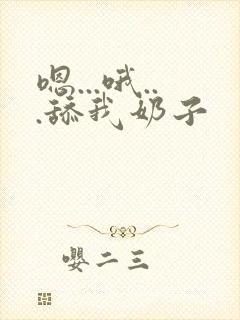 嗯...哦..
.舔我奶子
嘤二三